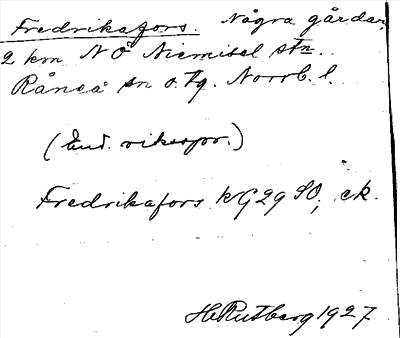 Fredrikafors. Några gårdar,
2 km NÖ Niemisel stn.
Råneå sn o. tg. Norrb. l.
(End. riksspr.)
Fredrikafors KG29 SO; ek.
H Rutberg 1927